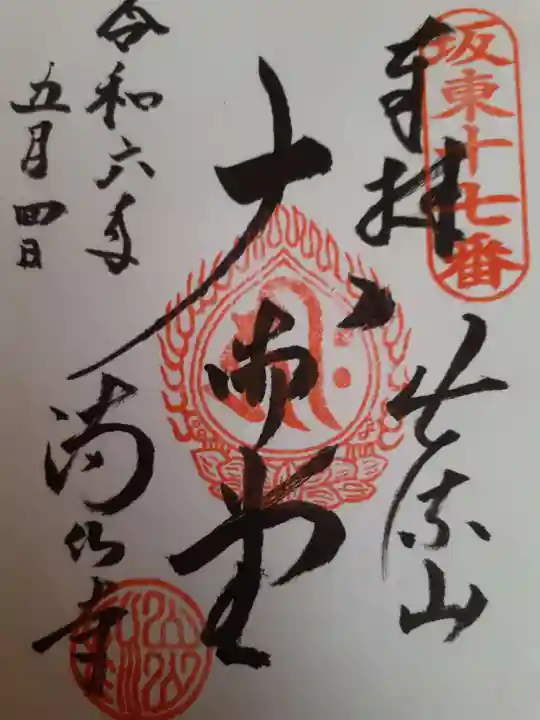 坂東十七番
奉拝
出流山
大御堂
令和六年
五月四日
満願寺